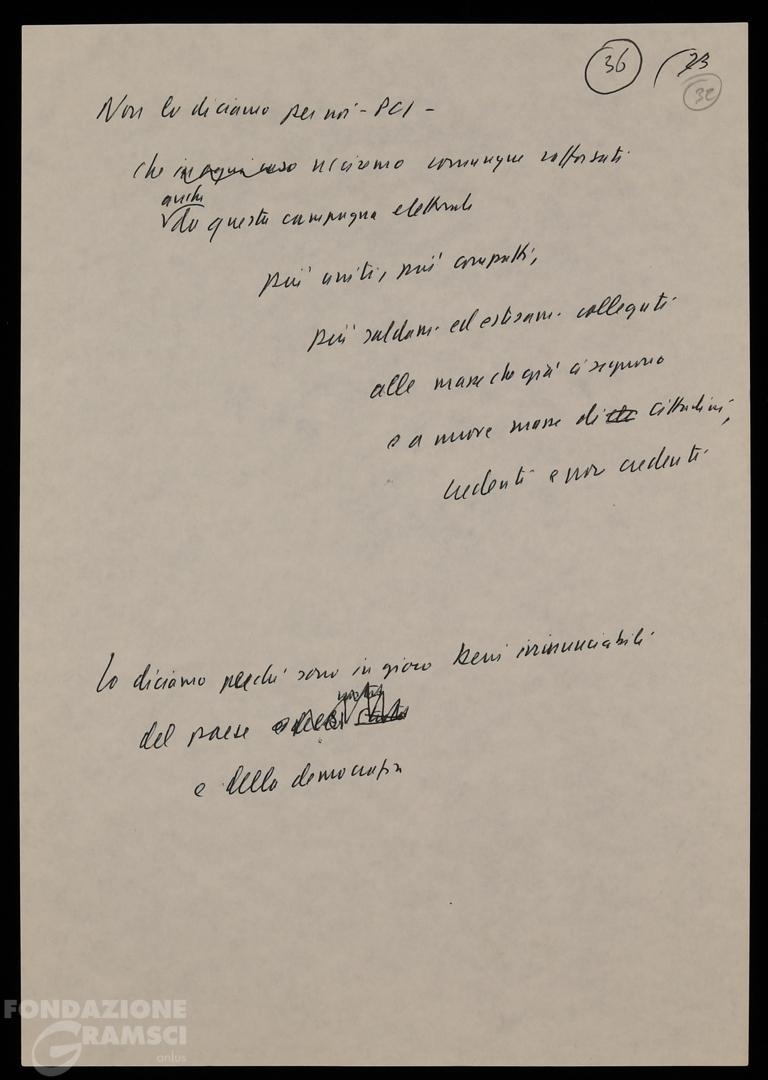 36
73
32
Non lo diciamo per noi - PCI -
che in ogni caso usciremo comunque rafforzati
anche
da questa campagna elettorale
più uniti, più compatti,
più saldam. ed estesam. collegati
alle masse che già ci seguono
e a nuove masse di cittadini,
credenti e non credenti.
Lo diciamo perché sono in gioco beni irrinunciabili
del paese
e della democrazia
FONDAZIONE
GRAMSCI
onlus